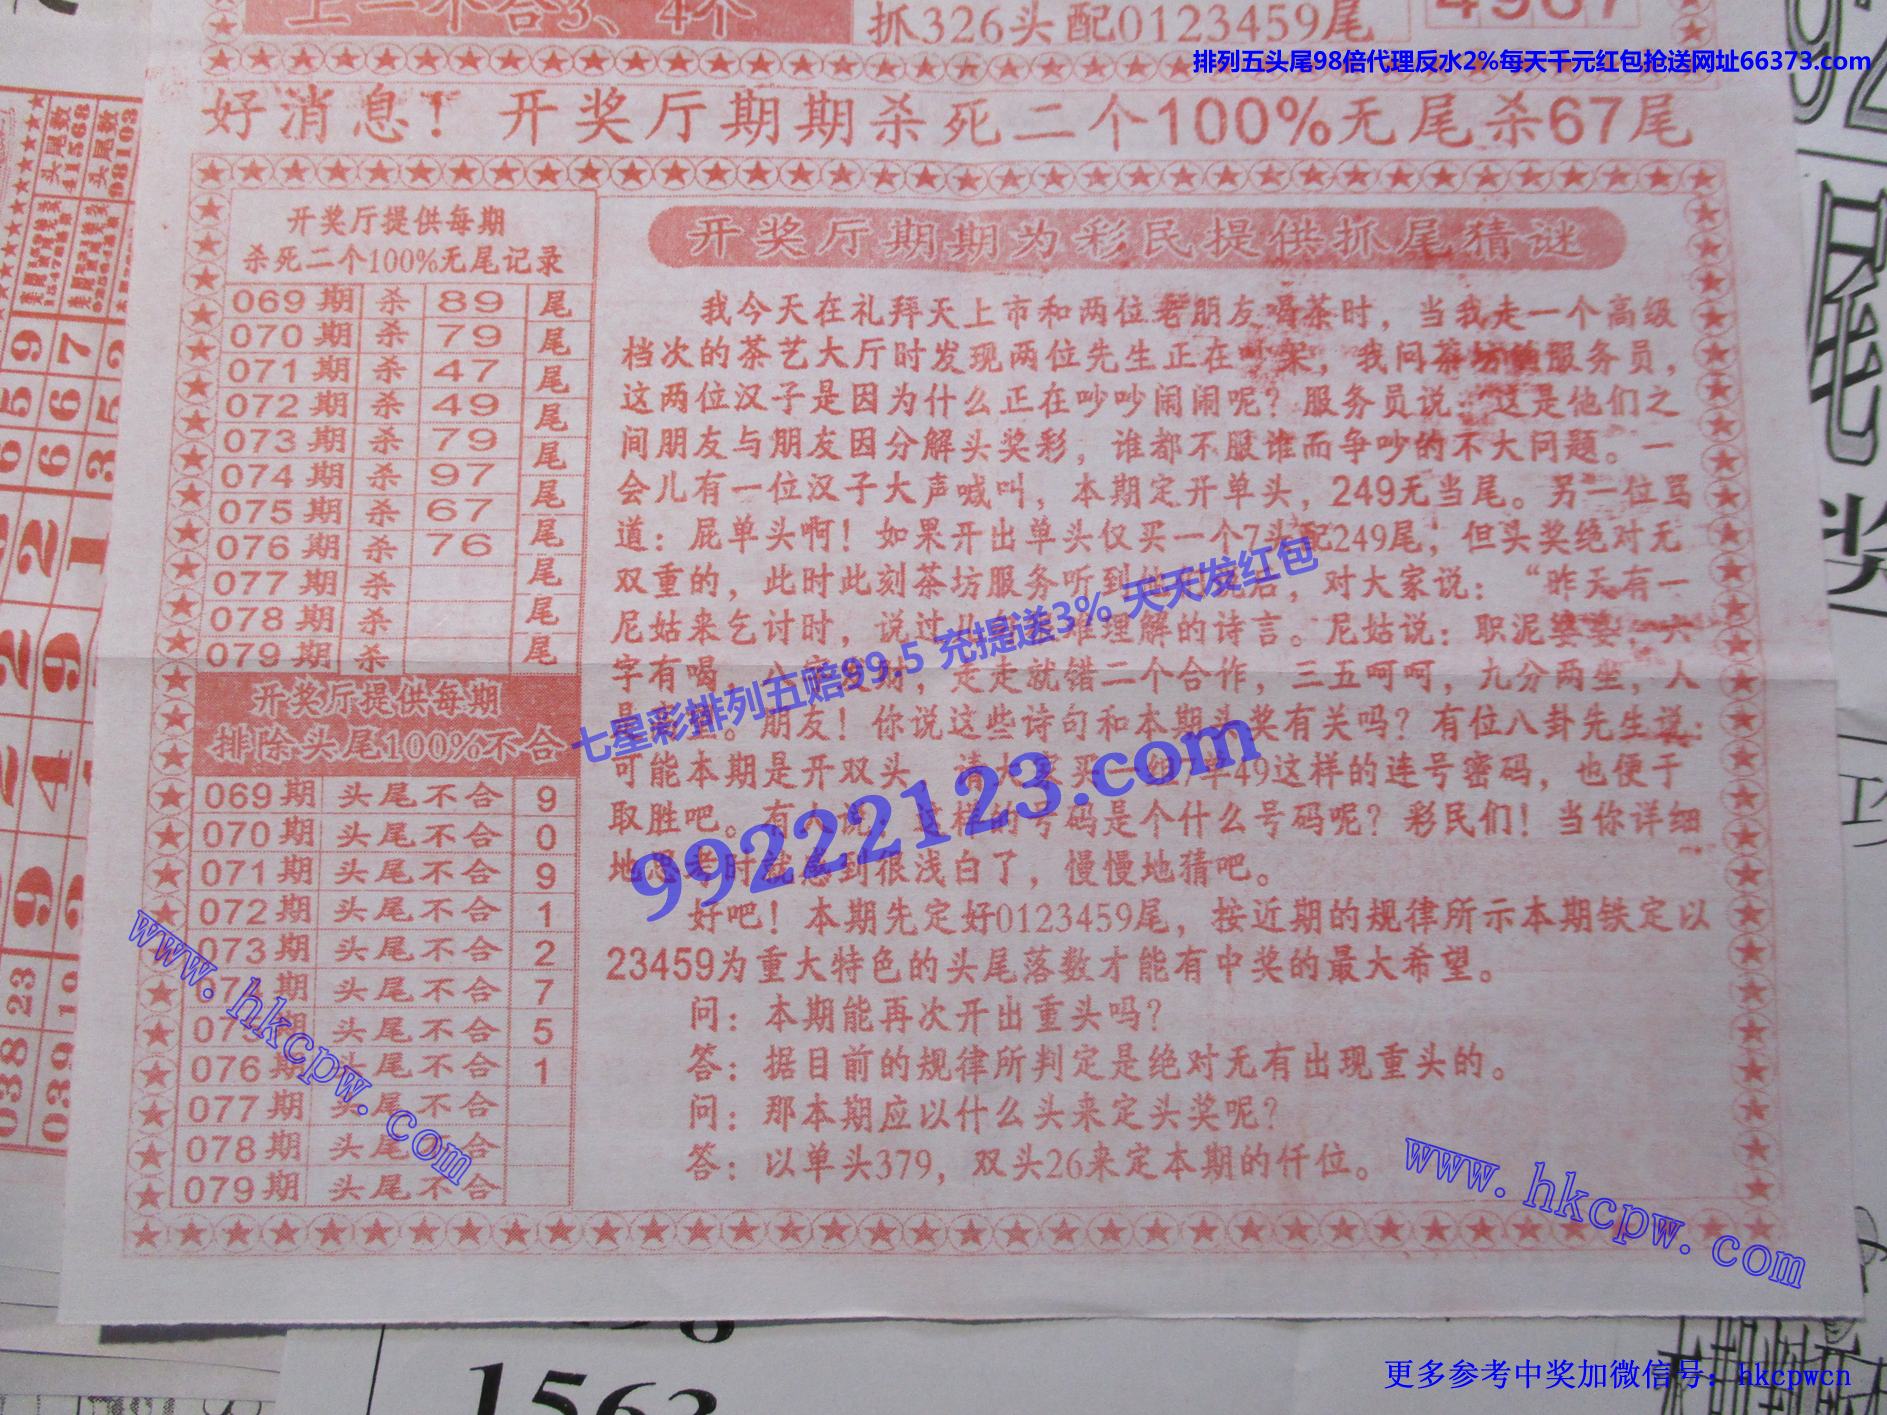 上二不合3、4个
抓326头配0123459尾
4967
排列五头尾98倍代理反水2%每天千元红包抢送网址66373.com
好消息！开奖厅期期杀死二个100%无尾杀67尾
开奖厅提供每期
杀死二个100%无尾记录
069期 杀 89 尾
070期 杀 79 尾
071期 杀 47 尾
072期 杀 49 尾
073期 杀 79 尾
074期 杀 97 尾
075期 杀 67 尾
076期 杀 76 尾
077期 杀 尾
078期 杀 尾
079期 杀 尾
开奖厅提供每期
排除头尾100%不合
069期 头尾不合 9
070期 头尾不合 0
071期 头尾不合 9
072期 头尾不合 1
073期 头尾不合 2
074期 头尾不合 7
075期 头尾不合 5
076期 头尾不合 1
077期 头尾不合
078期 头尾不合
079期 头尾不合
开奖厅期期为彩民提供抓尾猜谜
我今天在礼拜天上市和两位老朋友喝茶时，当我走一个高级
档次的茶艺大厅时发现两位先生正在 架，我问茶坊 服务员，
这两位汉子是因为什么正在吵吵闹闹呢？服务员说："这是他们之
间朋友与朋友因分解头奖彩，谁都不服谁而争吵的不大问题。一
会儿有一位汉子大声喊叫，本期定开单头，249无当尾。另一位骂
道：屁单头啊！如果开出单头仅买一个7头配249尾，但头奖绝对无
双重的，此时此刻茶坊服务听到 后，对大家说："昨天有一
尼姑来乞讨时，说过 难理解的诗言。尼姑说：职泥婆婆，六
字有喝， ，走走就错二个合作，三五呵呵，九分两坐，人
是 。朋友！你说这些诗句和本期头奖有关吗？有位八卦先生说：
可能本期是开双头，请大家买一组7年49这样的连号密码，也便于
取胜吧。有人说：这样的号码是个什么号码呢？彩民们！当你详细
地思考时就感到很浅白了，慢慢地猜吧。
好吧！本期先定好0123459尾，按近期的规律所示本期铁定以
23459为重大特色的头尾落数才能有中奖的最大希望。
问：本期能再次开出重头吗？
答：据目前的规律所判定是绝对无有出现重头的。
问：那本期应以什么头来定头奖呢？
答：以单头379，双头26来定本期的仟位。
七星彩排列五赔99.5 充提送3% 天天发红包
99222123.com
www.hkcpw.com
www.hkcpw.com
1563
更多参考中奖加微信号：hkcpwcn